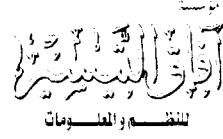 مؤسسة
آفاق التيسير
للنظم والمعلومات